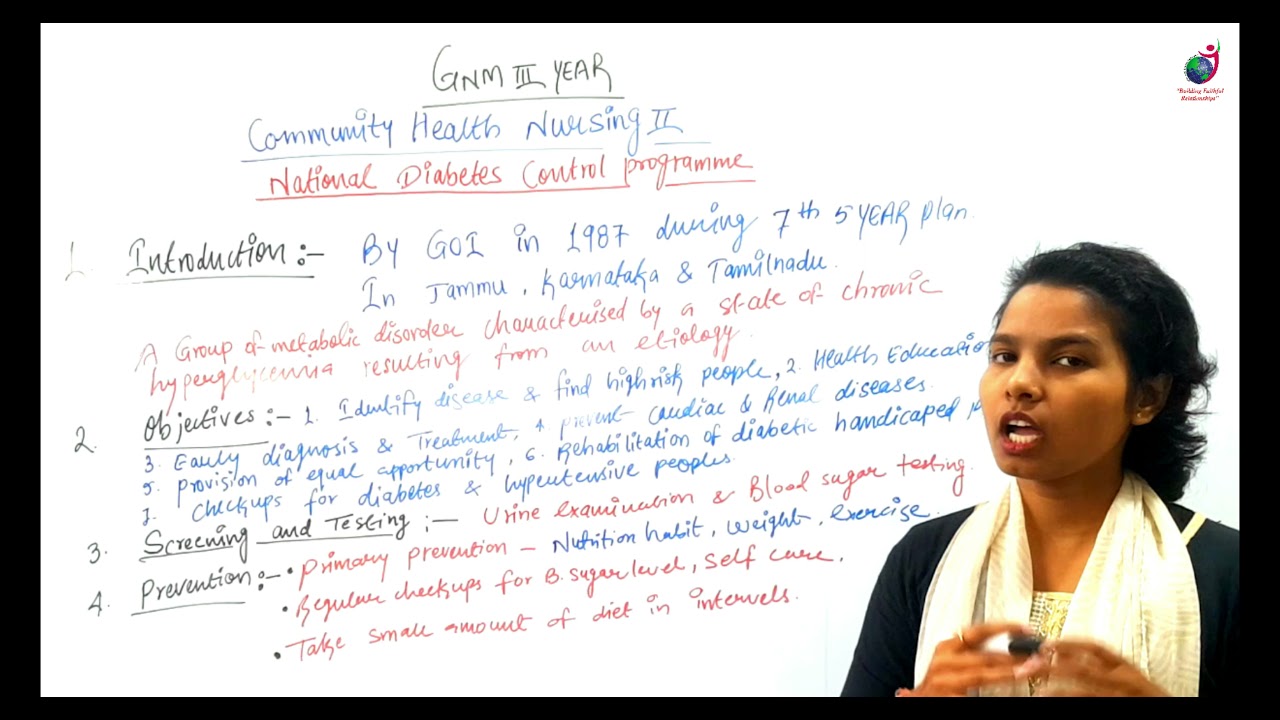 GNM III YEAR
Community Health Nursing II
National Diabetes Control programme
1. Introduction :- By GOI in 1987 during 7th 5 YEAR plan.
In Jammu, Karnataka & Tamilnadu.
A Group of metabolic disorder characterised by a state of chronic
hyperglycemia resulting from an etiology.
2. Objectives :- 1. Identify disease & find high risk people, 2. Health Educatio
3. Early diagnosis & Treatment, 4. prevent cardiac & Renal diseases.
5. provision of equal opportunity, 6. Rehabilitation of diabetic handicaped
7. checkups for diabetes & hypertensive peoples.
3. Screening and Testing :- Urine examination & Blood sugar testing.
4. Prevention :- • Primary prevention - Nutrition habit, weight, exercise.
• Regular checkups for B. sugar level, Self care,
• Take small amount of diet in intervels.
"Building Faithful
Relationships"